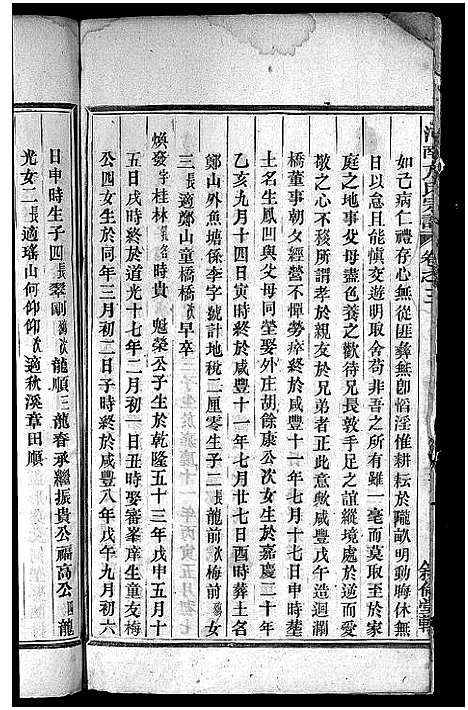 河南方氏宗譜
卷之三
敘倫堂輯
如己病仁禮存心無從匪彝無卽慆淫惟耕耘於隴畝明動晦休無
日以怠且能愼交遊明取舍苟非吾之所有雖一毫而莫取至於家
庭之地事父母盡色養之歡待兄長敦手足之誼縱境處於逆而愛
敬之心不移所謂孝於親友於兄弟者正此意歟咸豐戊午造迴瀾
橋董事朝夕經營不憚勞瘁終於咸豐十一年七月十七日申時葬
土名生鳳凹與父母同塋娶外庄胡餘康公次女生於嘉慶二十年
乙亥九月十四日寅時終於咸豐十一年七月廿七日酉時葬土名
鄭山外魚塘係李字號計地稅二厘零生子二張龍前歘梅前㚻女
三張適鄭山童橋橋歘早卒
煥發字桂林名時貴 魁榮公子生於乾隆五十三年戊申五月十
五日戌時終於道光十七年二月初一日丑時娶審峯庠生童友梅
公四女生於同年三月初二日子時終於咸豐八年戊午九月初六
日申時生子四張翠剛㚻歘龍順三龍春承繼振貴公福高公四龍
光女二張適瑤山何仰仰歘適秋溪章田順